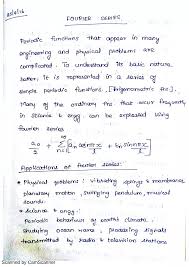 FOURIER SERIES
Periodic functions that appear in many
engineering and physical problems are
complicated. To understand its basic nature
better, it is represented in a series of
simple periodic functions. [Trigonometric fns].
Many of the ordinary fns that occur frequently,
in science & engg. can be explained using
fourier series
a₀/2 + ∑ aₙ cos nπx/l + bₙ sin nπx/l
Applications of fourier series:
Physical problems : vibrating springs & membrane
planetary motion, swinging pendulum, musical
sounds.
Science & engg:
Periodic behaviour of earths climate,
studying ocean wave, producing signals
transmitted by radio & television stations
Scanned by CamScanner